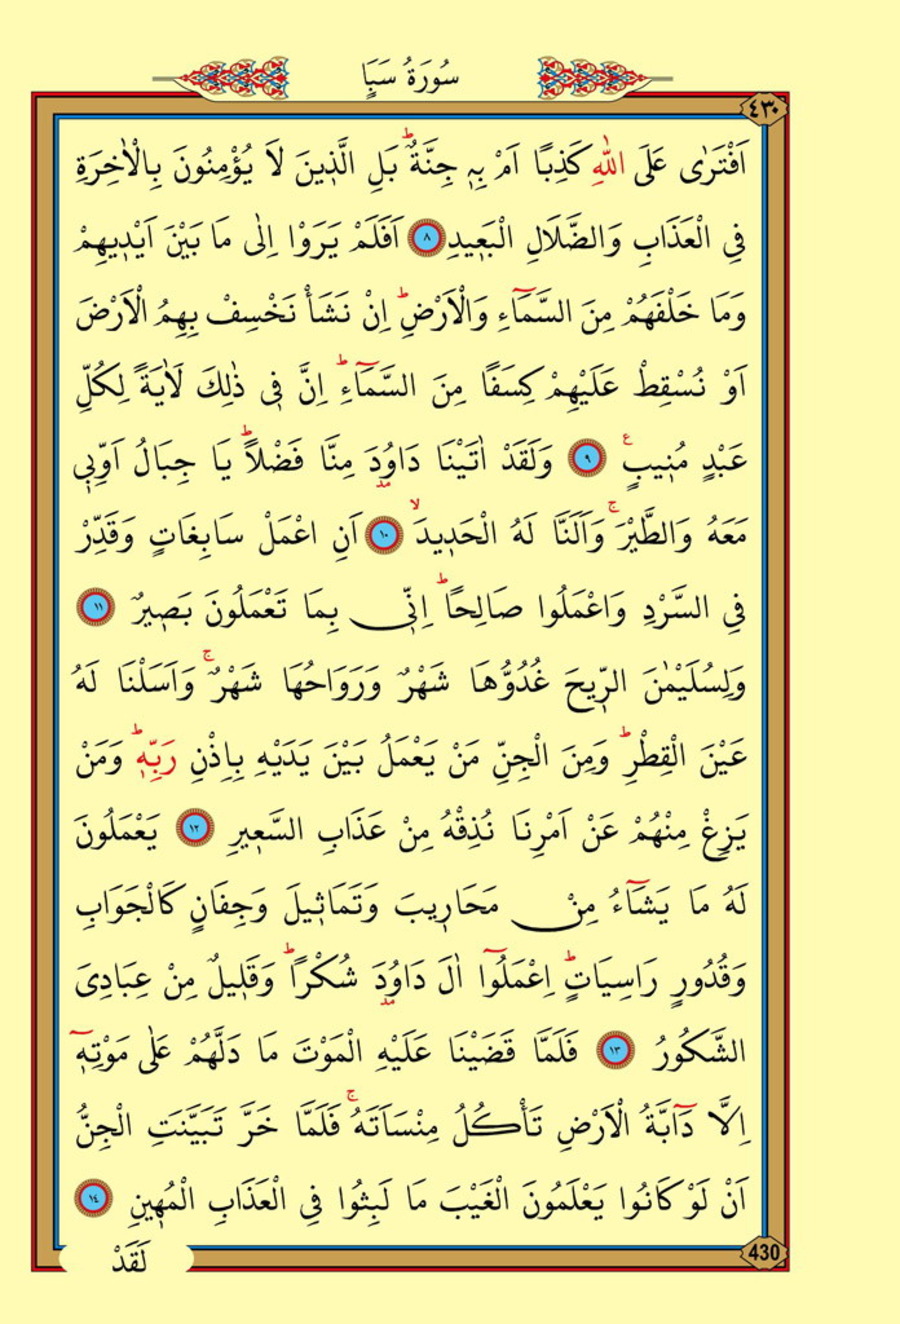 سُورَةُ سَبَإٍ
٤٣٠
اَفْتَرٰى عَلَى اللّٰهِ كَذِبًا اَمْ بِه۪ جِنَّةٌۜ بَلِ الَّذ۪ينَ لَا يُؤْمِنُونَ بِالْاٰخِرَةِ
فِي الْعَذَابِ وَالضَّلَالِ الْبَع۪يدِ ﴿٨﴾ اَفَلَمْ يَرَوْا اِلٰى مَا بَيْنَ اَيْد۪يهِمْ
وَمَا خَلْفَهُمْ مِنَ السَّمَٓاءِ وَالْاَرْضِۜ اِنْ نَشَأْ نَخْسِفْ بِهِمُ الْاَرْضَ
اَوْ نُسْقِطْ عَلَيْهِمْ كِسَفًا مِنَ السَّمَٓاءِۜ اِنَّ ف۪ي ذٰلِكَ لَاٰيَةً لِكُلِّ
عَبْدٍ مُن۪يبٍ۟ ﴿٩﴾ وَلَقَدْ اٰتَيْنَا دَاوُ۫دَ مِنَّا فَضْلًاۜ يَا جِبَالُ اَوِّب۪ي
مَعَهُ وَالطَّيْرَۚ وَاَلَنَّا لَهُ الْحَد۪يدَۙ ﴿١٠﴾ اَنِ اعْمَلْ سَابِغَاتٍ وَقَدِّرْ
فِي السَّرْدِ وَاعْمَلُوا صَالِحًاۜ اِنّ۪ي بِمَا تَعْمَلُونَ بَص۪يرٌ ﴿١١﴾
وَلِسُلَيْمٰنَ الرّ۪يحَ غُدُوُّهَا شَهْرٌ وَرَوَاحُهَا شَهْرٌۚ وَاَسَلْنَا لَهُ
عَيْنَ الْقِطْرِۜ وَمِنَ الْجِنِّ مَنْ يَعْمَلُ بَيْنَ يَدَيْهِ بِاِذْنِ رَبِّه۪ۜ وَمَنْ
يَزِغْ مِنْهُمْ عَنْ اَمْرِنَا نُذِقْهُ مِنْ عَذَابِ السَّع۪يرِ ﴿١٢﴾ يَعْمَلُونَ
لَهُ مَا يَشَٓاءُ مِنْ مَحَار۪يبَ وَتَمَاث۪يلَ وَجِفَانٍ كَالْجَوَابِ
وَقُدُورٍ رَاسِيَاتٍۜ اِعْمَلُٓوا اٰلَ دَاوُ۫دَ شُكْرًاۜ وَقَل۪يلٌ مِنْ عِبَادِيَ
الشَّكُورُ ﴿١٣﴾ فَلَمَّا قَضَيْنَا عَلَيْهِ الْمَوْتَ مَا دَلَّهُمْ عَلٰى مَوْتِه۪ٓ
اِلَّا دَٓابَّةُ الْاَرْضِ تَأْكُلُ مِنْسَاَتَهُۚ فَلَمَّا خَرَّ تَبَيَّنَتِ الْجِنُّ
اَنْ لَوْ كَانُوا يَعْلَمُونَ الْغَيْبَ مَا لَبِثُوا فِي الْعَذَابِ الْمُه۪ينِ ﴿١٤﴾
430
لَقَدْ